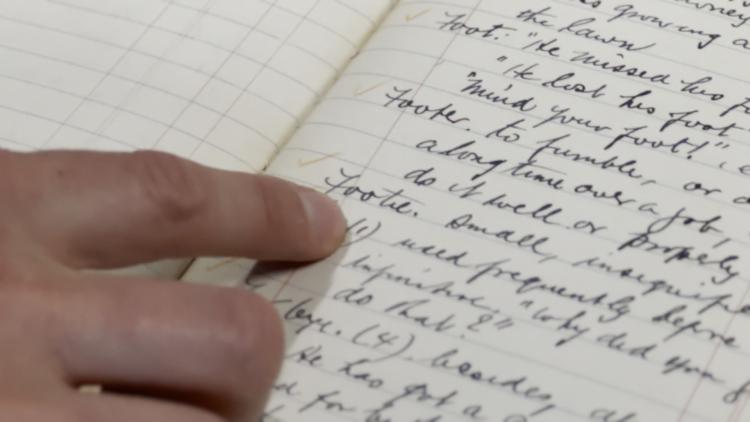 growing a
the lawn
Foot. "He missed his
"He lost his foot
"Mind your foot!"
Footer. to fumble, or
a long time over a job,
do it well or properly
Footie. Small,
(1) used frequently before
infinitive. "Why did you
do that?"
(4). besides,
He has got a
for